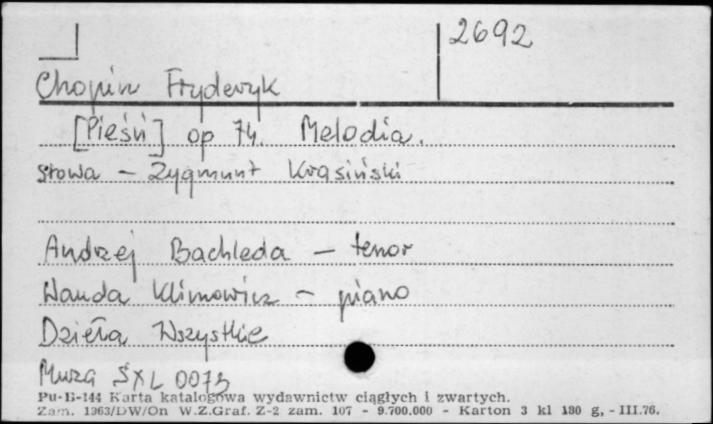 2692
Chopin Fryderyk
[Pieśń] op 74. Melodia.
słowa - Zygmunt Krasiński
Andrzej Bachleda - tenor
Wanda Klimowicz - piano
Dzieła Wszystkie
Muza SXL 0075
Pu-B-144 Karta katalogowa wydawnictw ciągłych i zwartych.
Zam. 1363/DW/On W.Z.Graf. Z-2 zam. 107 - 9.700.000 - Karton 3 kl 180 g, - III.76.